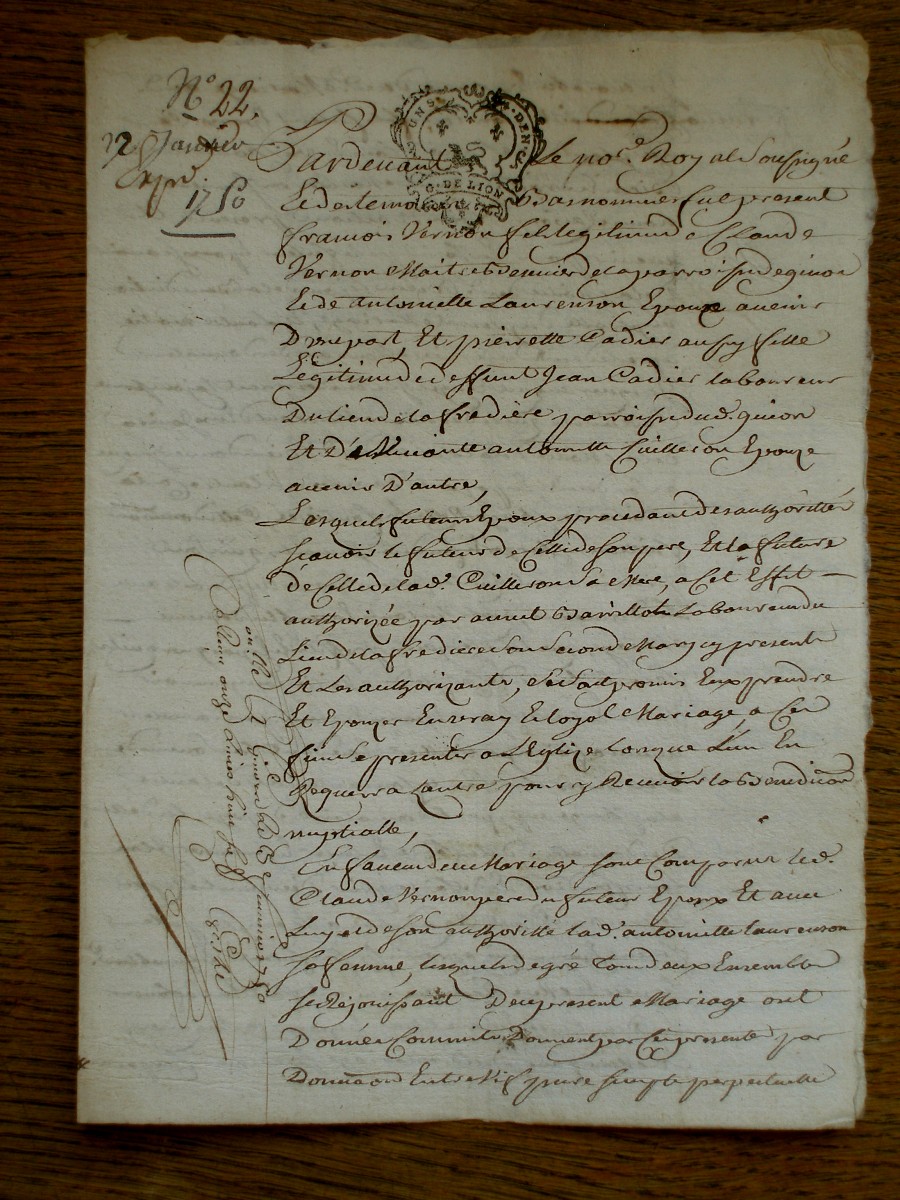 N° 22.
22 Janvier
Expé.
1750
G. DE LION
Pardevant le nore. Royal Soussigné
Et des temoins Bas nommés fut present
francois Vernon fils legitime de Claude
Vernon Maitre
Et de antoinette Laurenson Epoux avenir
D'une part, Et pierrette Cadier aussy fille
Legitime de deffunt Jean Cadier laboureur
Du lieu de la fredière parroisse dud.
Et De Vivante antoinette Cuilleron Epouze
avenir D'autre,
Lesquels futurs Epoux procedant des authorittés
scavoir le futur de Celle de Son pere, Et la future
de Celle de lad. Cuilleron Sa Mere, a Cet Effet
authorizée par Laboureur du
Lieu de la fredière Son Second Mary cy present
Et Les authorizants, Se Sont promis Eux prendre
Et Epouzer En vray Et loyal Mariage, a Ces
fins Se presenter a L'Eglize lorsque L'un En
Requerra Lautre pour y Recevoir la Benediction
nuptialle,
En faveur du Mariage sont Comparus led.
Claude Vernon pere du futur Epoux Et avec
Luy et de son authorité lad. antoinette Laurenson
sa femme, lesquels de gré tous deux Ensemble
se Rejouissant Du present Mariage ont
Donné Comme ils Donnent par Ces presentes par
Donnaon Entre Vifs pure simple perpetuelle